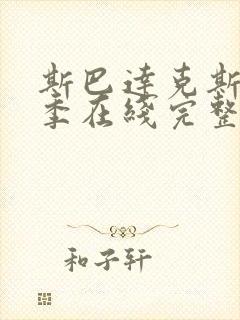 斯巴达克斯
季在线完整
和子轩